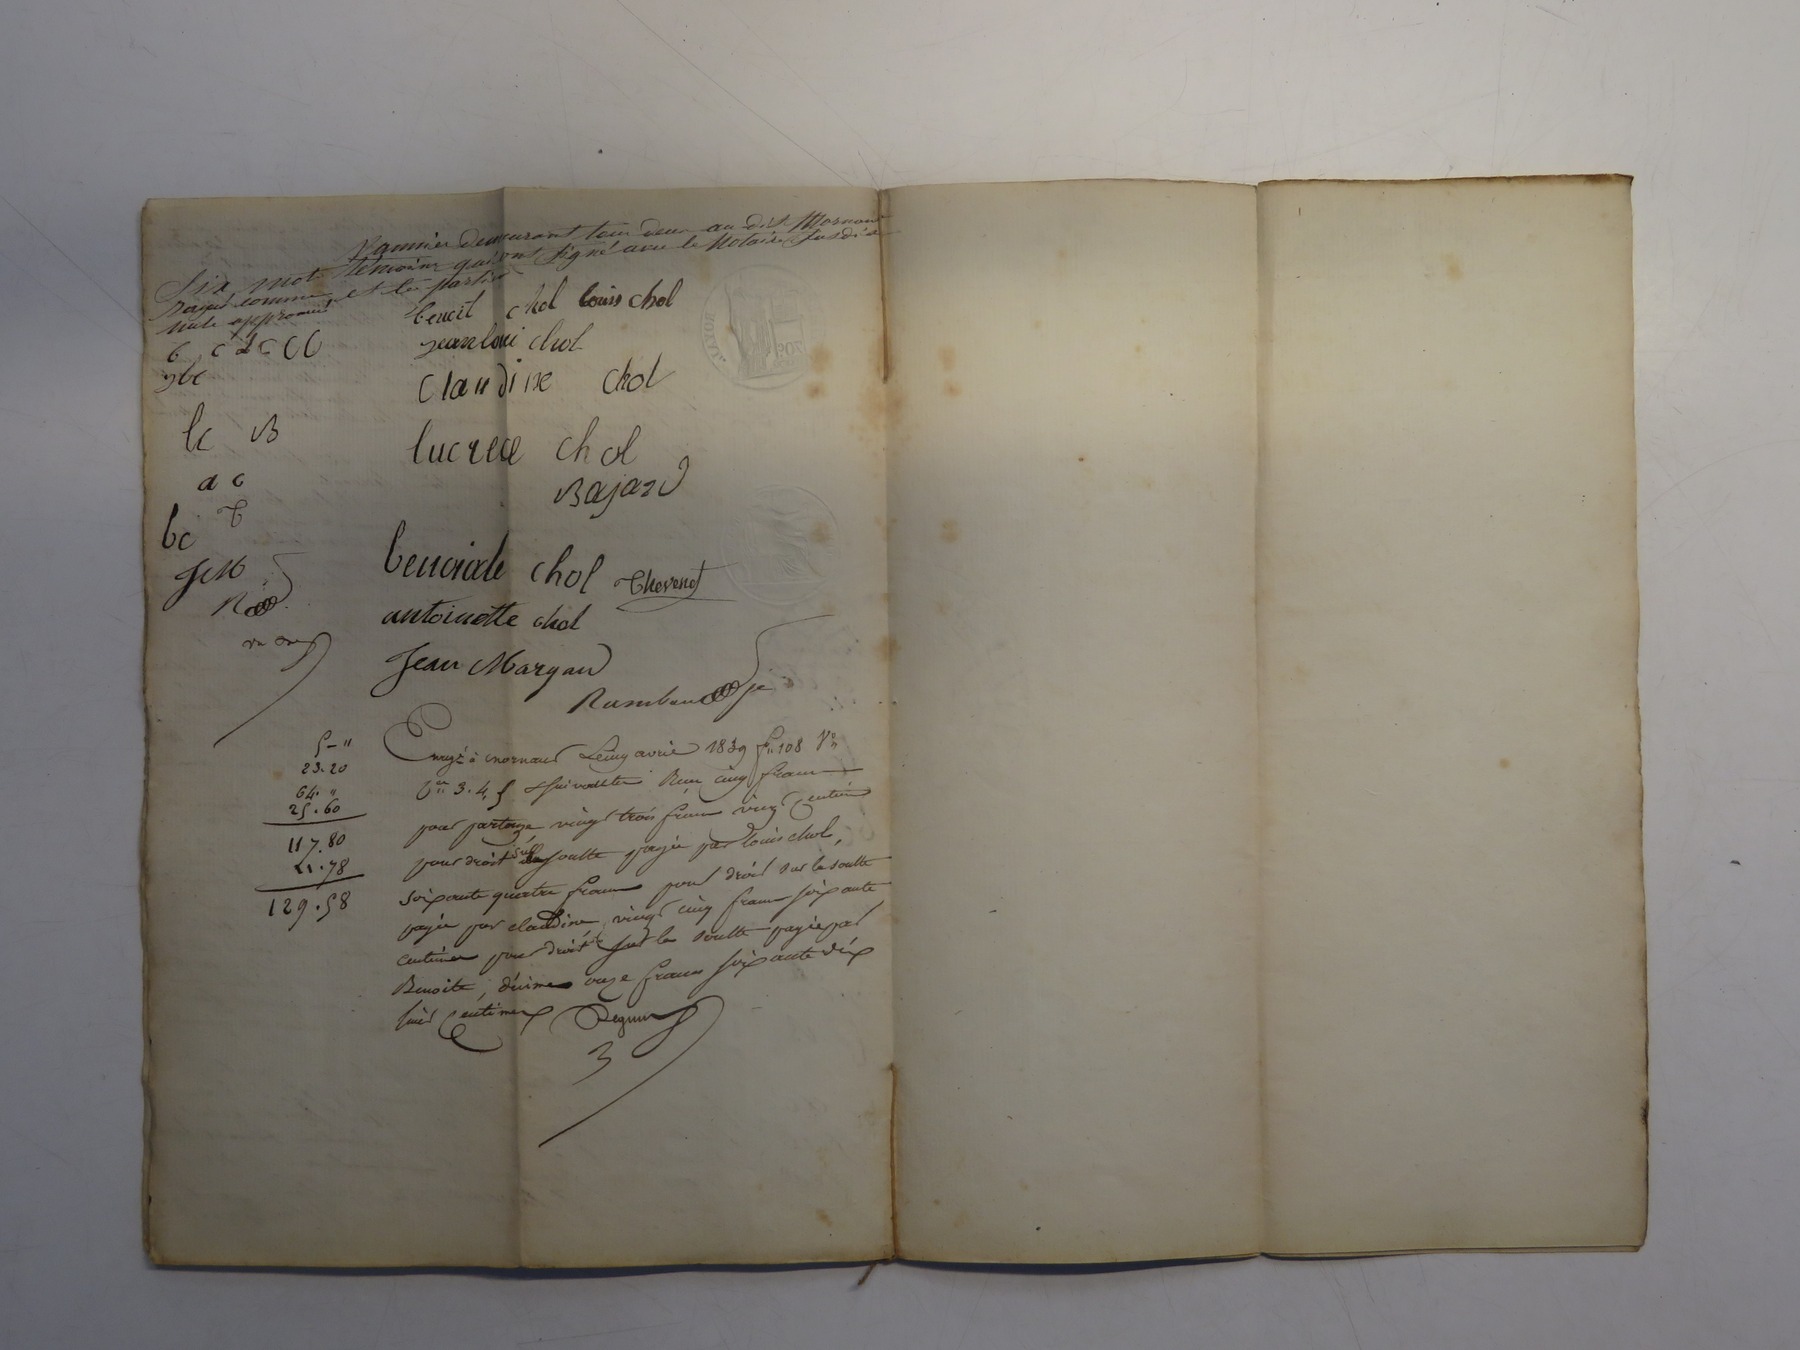 Vannier demeurant tous deux au dit Mornant
témoins qui ont signé avec le Notaire susdit
et les parties
Six mots
rayés comme
nuls approuvés
benoit chol louis chol
jean loui chol
claudine chol
lucrece chol
Bajard
benoiste chol Thevenet
antoinette chol
Jean Margand
Rambaud
b c l c CC
lc B
a c
T
bc
JM
5 - "
23.20
64. "
25.60
117.80
11.78
129.58
Enregé à mornant Le cinq avril 1839 fo 108 Vo
Cen 3.4.5 & suivantes Reçu cinq francs
pour partage vingt trois francs vingt centimes
pour droit sur la soulte payée par Louis chol,
soixante quatre francs pour droit sur la soulte
payée par claudine, vingt cinq francs soixante
centimes pour droit sur la soulte payée par
Benoite, décime onze francs soixante dix
huit Centimes
3